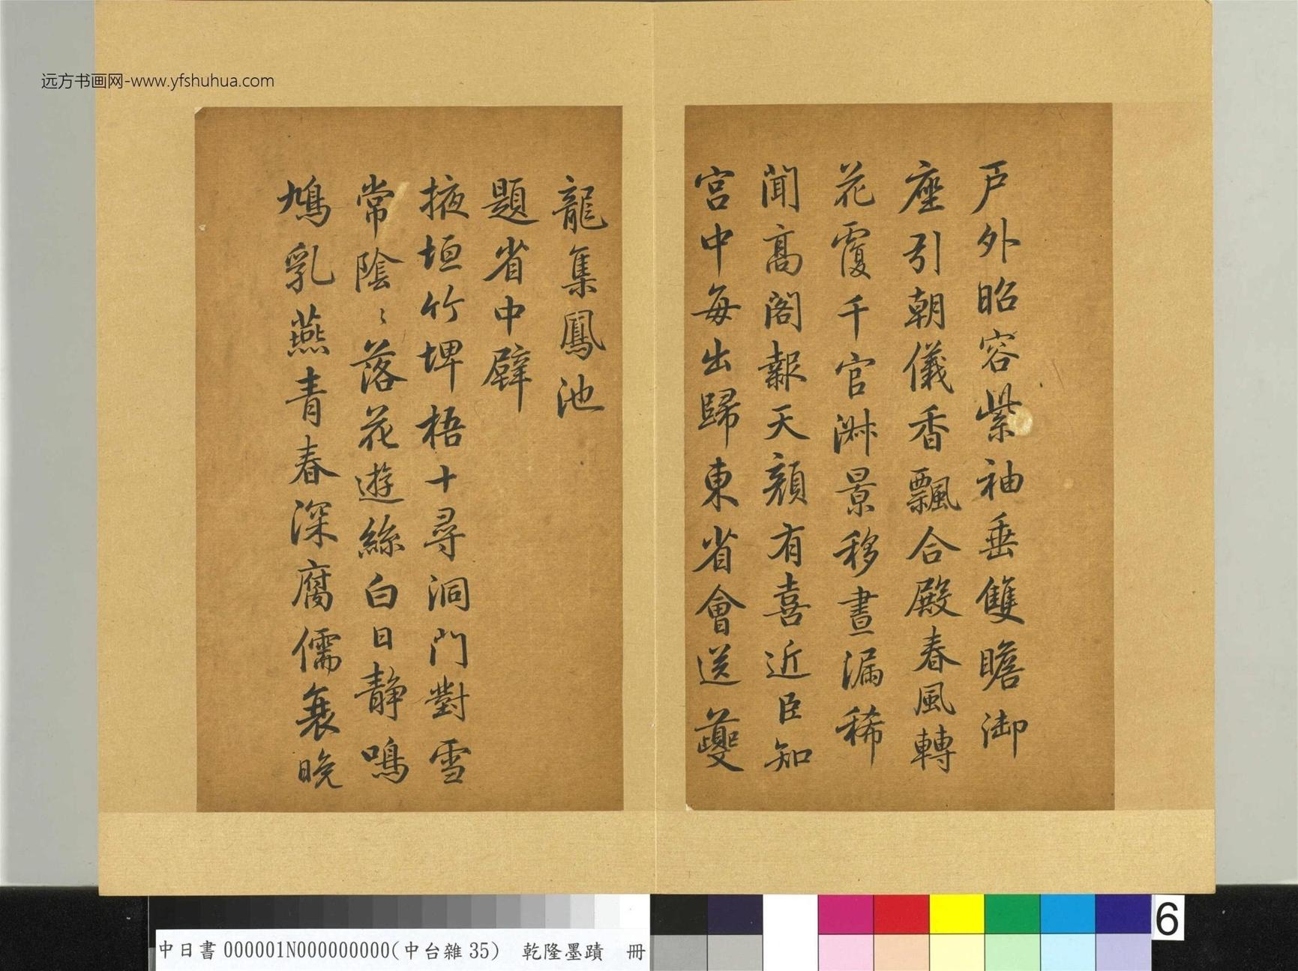 远方书画网-www.yfshuhua.com
戶外昭容紫袖垂雙瞻御
座引朝儀香飄合殿春風轉
花覆千官淋景移晝漏稀
聞高閣報天顏有喜近臣知
宮中每出歸東省會送夔
龍集鳳池
題省中壁
掖垣竹埤梧十尋洞門對雪
常陰〻落花遊絲白日靜鳴
鳩乳燕青春深腐儒衰晚
6
中日書000001N000000000(中台雜35) 乾隆墨蹟 冊